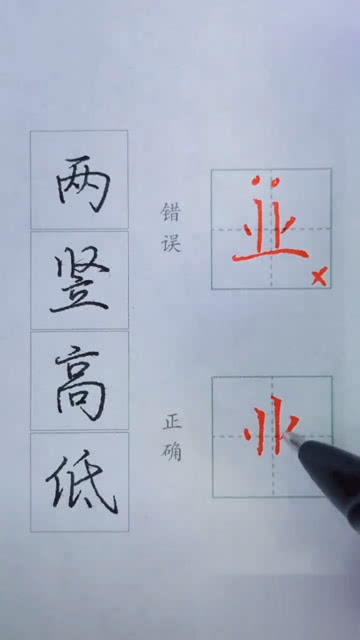 两竖高低
错误
正确